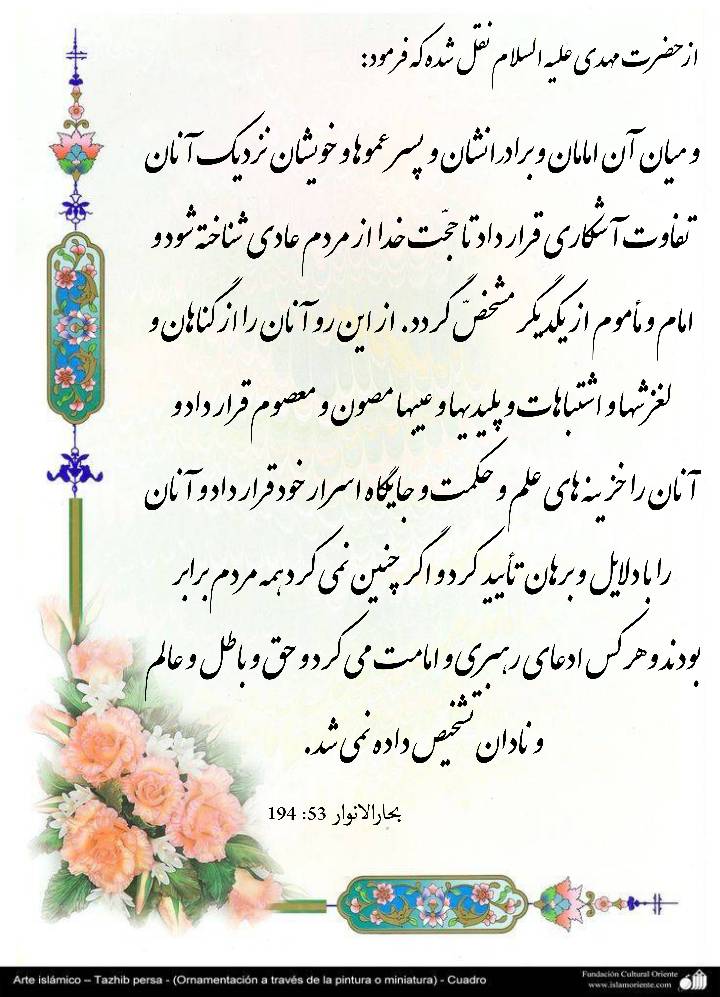 از حضرت مهدی علیه السلام نقل شده که فرمود:
و میان آن امامان و برادرانشان و پسر عموها و خویشان نزدیک آنان
تفاوت آشکاری قرار داد تا حجّت خدا از مردم عادی شناخته شود و
امام و مأموم از یکدیگر مشخصّ گردد. از این رو آنان را از گناهان و
لغزشها و اشتباهات و پلیدیها و عیبها مصون و معصوم قرار داد و
آنان را خزینه های علم و حکمت و جایگاه اسرار خود قرار داد و آنان
را با دلایل و برهان تأیید کرد و اگر چنین نمی کرد همه مردم برابر
بودند و هر کس ادعای رهبری و امامت می کرد و حق و باطل و عالم
و نادان تشخیص داده نمی شد.
بحارالانوار 53: 194
Arte islámico – Tazhib persa - (Ornamentación a través de la pintura o miniatura) - Cuadro
Fundación Cultural Oriente
www.islamoriente.com